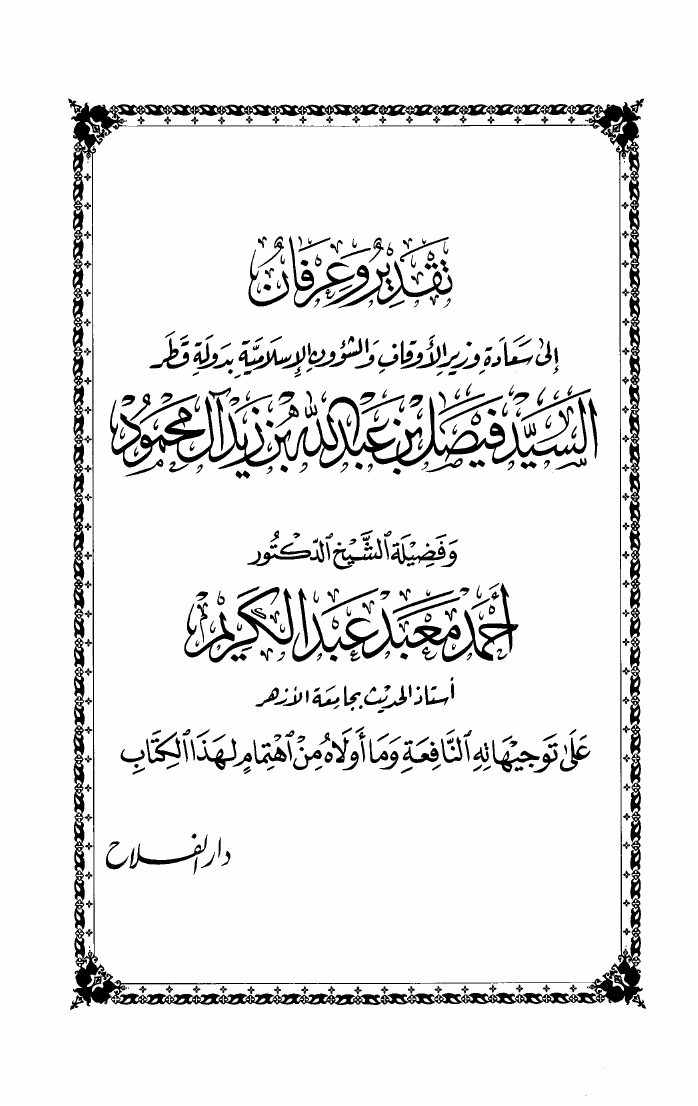 تَقْدِيرٌ وَعِرْفَانٌ
إِلىٰ سَعَادَةِ وَزيرِ الأَوقَافِ وَالشؤُونِ الإِسلَاميَّةِ بِدَولَةِ قَطَر
السَيِّد فَيصَل بْن عَبْد اللَّه بْن زَيد آل مَحمُود
وَفَضِيلَة ٱلشَّيْخ ٱلدّكتُور
أَحْمَد مَعْبَد عَبْد الكَرِيْم
أستاذ الحديث بجامِعَة الأزهر
عَلىٰ تَوجيهَاتِهِ ٱلنَّافِعَةِ وَمَا أَولَاهُ مِنْ ٱهْتِمَامٍ لِهَذَا ٱلكِتَابِ
دار الفلاح